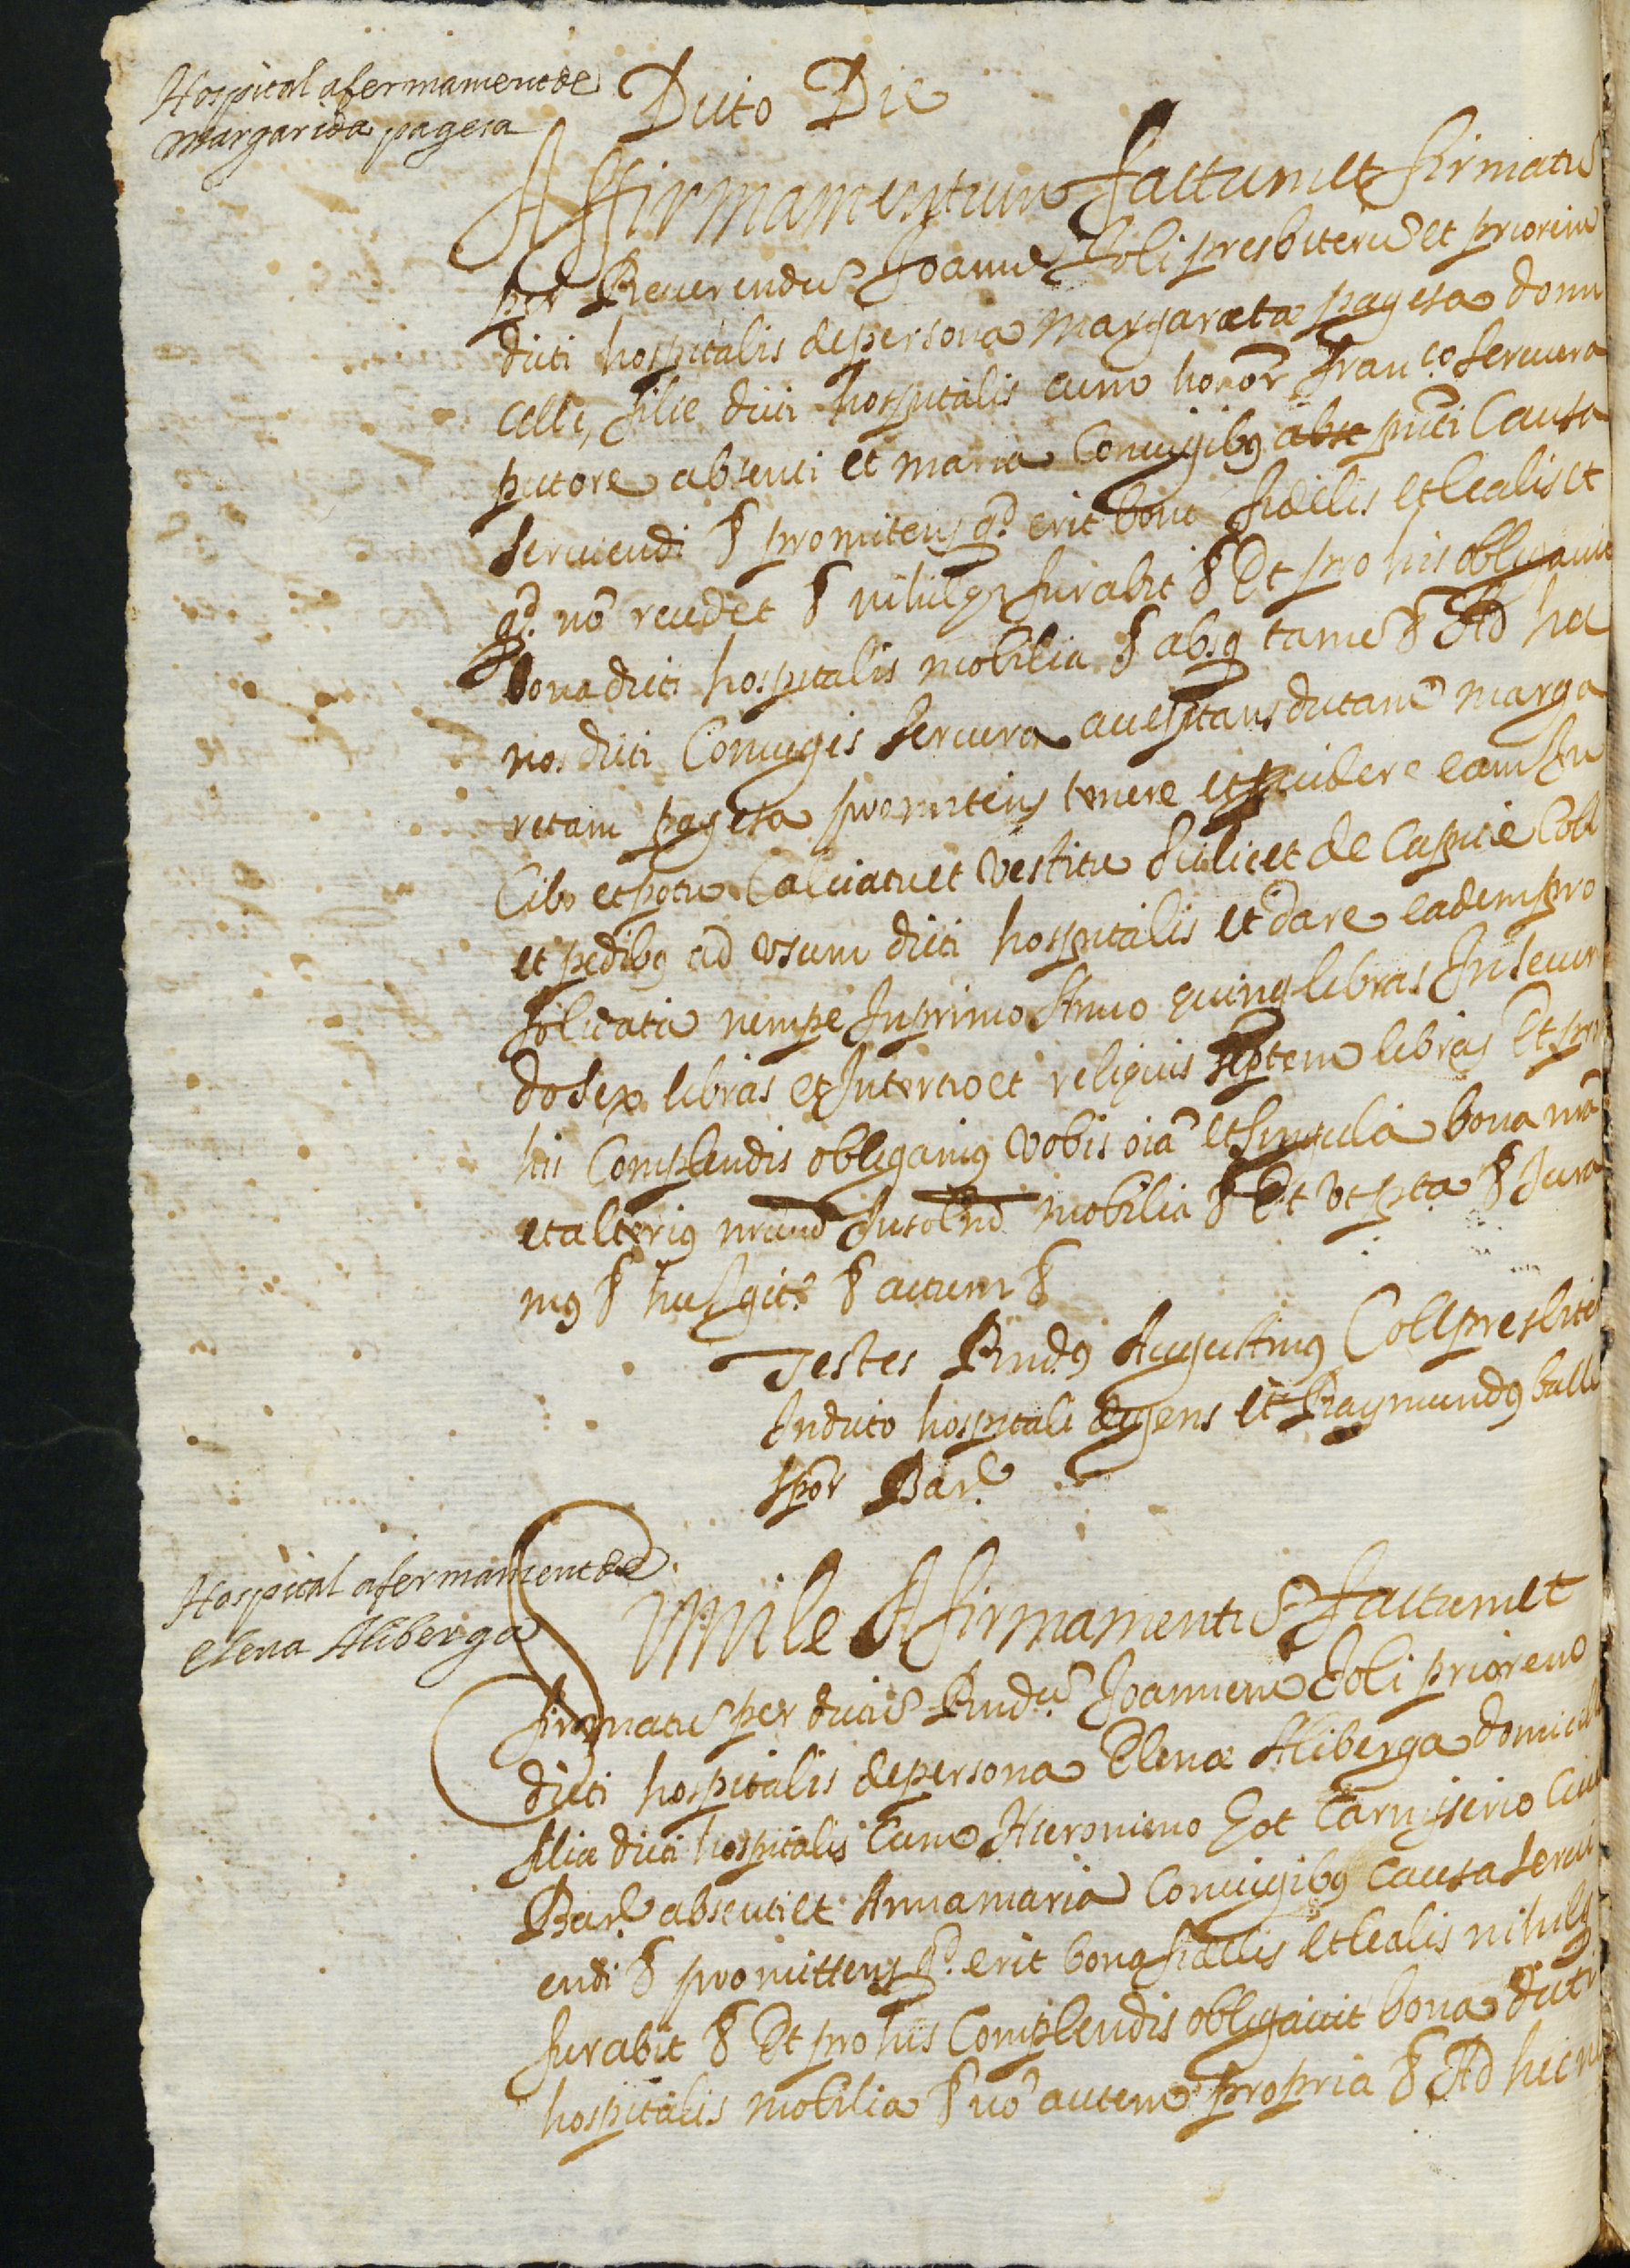 Hospital afermament de
margarida pagesa
Dicto Die
Affirmamentum factum et firmatũ
per Reuerendũ Joannẽ Joli presbiterũ et priorem
dicti hospitalis de persona Margaretæ pagesa domi
celle, filie dicti hospitalis cum honor Franco Ceruera
pictore absenti et maria Coniugibq pnti Causa
seruiendi & promitens qd erit bona fidelis et lealis et
qd nõ recedet & nihilqz furabit & Et pro his obligauit
bona dicti hospitalis mobilia & absq tamẽ & Ad hæ
nos dicti Coniuges Ceruera acceptans dictam marga
retam pagesa promitens tenere et prouidere eam In
Cibo et potu Calciatu et Vestitu scilicet de Capite Coll
et pedibq ad vsum dicti hospitalis et dare eadem pro
solidata nempe In primo Anno quinq libras In secun
do sex libras et In tertio et reliquis septem libras Et pro
his Complendis obligamq vobis oiã et singula bona nrã
et alteriq nrũm Insolĩd mobilia & Et vt pta & Jura
mq & hĩs igitr & actum &
Testes Rndq Augustinq Coll presbiter
In dicto hospitali degens et Raymundq balle
spõr Barc
Hospital afermament de
elena Aliberga
Simile Afirmamentũ factum et
firmatũ per dictũ Rndũ Joannem Joli priorem
dicti hospitalis de persona Elenæ Aliberga domicell
filia dicti hospitalis Cum Hieronimo Got Carnisserio Ciui
Barc absenti et Annamaria Coniugibq Causa serui
endi & promittens qd erit bona fidelis et lealis nihilqz
furabit & Et pro his Complendis obligauit bona dicti
hospitalis mobilia & nõ autem propria & Ad hec n